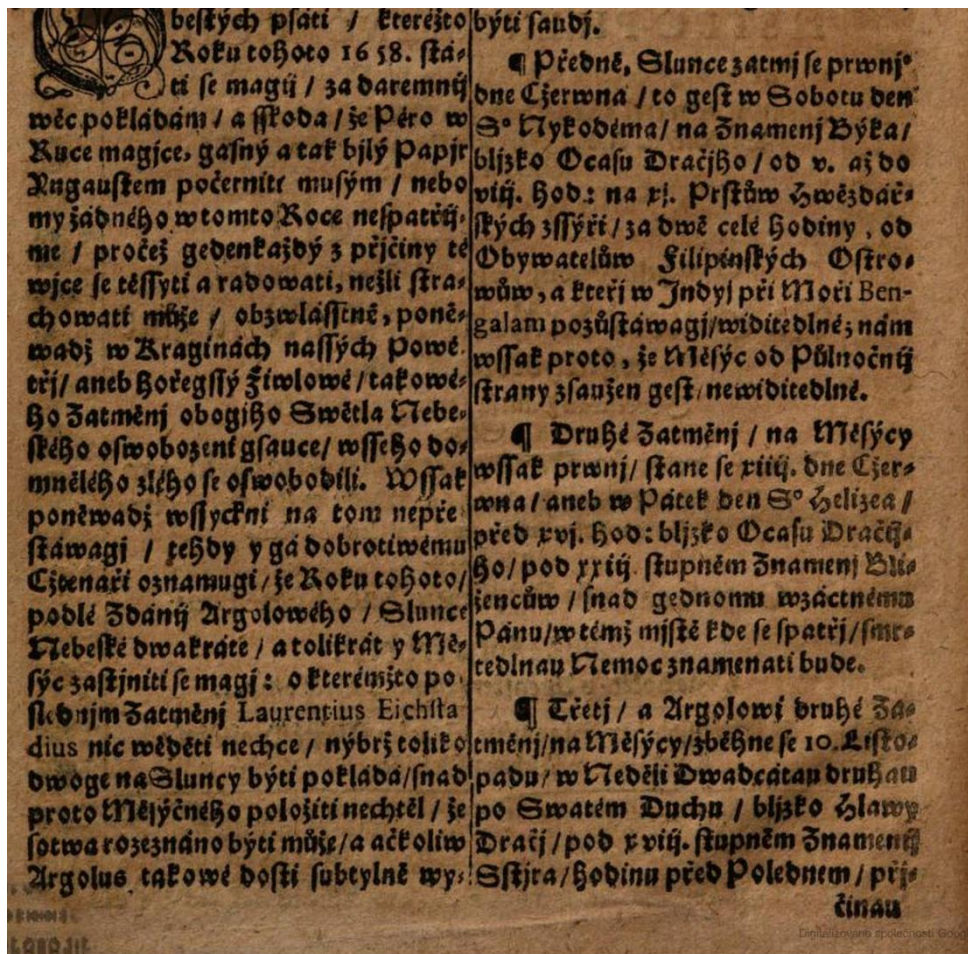 beských psáti / kteréžto
Roku tohoto 1658. stá-
ti se magij / za daremnij
wěc pokládám / a sskoda / že Péro w
Ruce magjce, gasný a tak bjlý Papjr
Yngaustem počerniti musým / nebo
my žádného w tomto Roce nespatřij-
me / pročež gedenkaždý z přjčiny té
wjce se těssyti a radowati, nežli stra-
chowati může / obzwlásstně, poně-
wadž w Kraginách nassých Powě-
třj / aneb hořegssý Žiwlowé / takowé-
ho Zatměnj obogjho Swětla Nebe-
ského oswobozeni gsauce / wsseho do-
mnělého zlého se oswobodili. Wssak
poněwadž wssyckni na tom nepře
stáwagj / tehdy y gá dobrotiwému
Cžtenáři oznamugi / že Roku tohoto /
podlé Zdánij Argolowého / Slunce
Nebeské dwakráte / a tolikrát y Mě-
syc zastjniti se magj : o kterémžto po
slednjm Zatměnj Laurentius Eichsta
dius nic wěděti nechce / nýbrž toliko
dwoge na Sluncy býti pokládá / snad
proto Měsýčného položiti nechtěl / že
sotwa rozeznáno býti může / a ačkoliw
Argolus takowé dosti subtylně wy-
býti saudj.
¶ Předně, Slunce zatmj se prwnj°
dne Cžerwna / to gest w Sobotu den
S° Nykodéma / na Znamenj Býka /
bljzko Ocasu Dračjho / od v. až do
viij. hod : na xj. Prstůw Hwězdář-
ských zssýři / za dwě celé hodiny , od
Obywatelůw Filipinských Ostro-
wůw , a kteřj w Jndyj při Moři Ben-
galam pozůstáwagj / widitedlné ; nám
wssak proto , že Měsýc od Půlnočnij
strany zsaužen gest / newiditedlné.
¶ Druhé Zatměnj / na Měsýcy
wssak prwnj / stane se xiiij. dne Cžer-
wna / aneb w Pátek den S° Helizea /
před xvj. hod : bljzko Ocasu Dračij-
ho / pod xxiij. stupněm Znamenj Bli-
ženců w / snad gednomu wzáctnému
Pánu / w témž mjstě kde se spatřj / smr-
tedlnau Nemoc znamenati bude.
¶ Třetj / a Argolowi druhé Za-
tměnj / na Měsýcy / zběhne se 10. Listo-
padu / w Neděli Dwadcátau druhau
po Swatém Duchu / bljzko Hlawy
Dračj / pod xviij. stupněm Znamenij
Sstjra / hodinu před Polednem / přj-
činau
Digitalizováno společností Goog